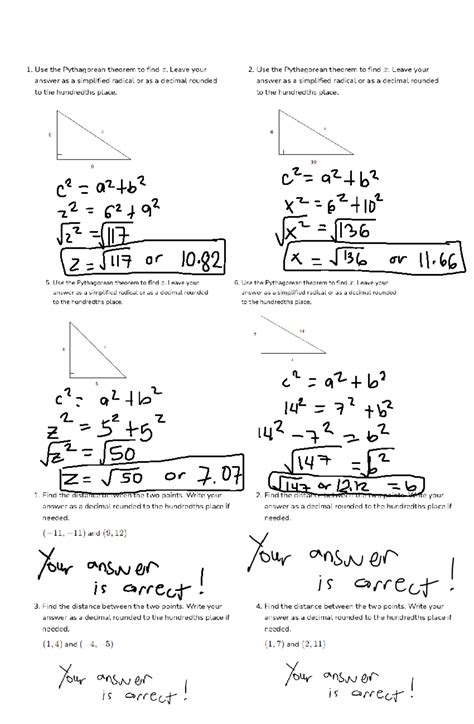 1. Use the Pythagorean theorem to find z. Leave your
answer as a simplified radical or as a decimal rounded
to the hundredths place.
6
z
9
c² = a²+b²
z² = 6²+9²
√z² = √117
z = √117 or 10.82
2. Use the Pythagorean theorem to find x. Leave your
answer as a simplified radical or as a decimal rounded
to the hundredths place.
6
x
10
c² = a²+b²
x² = 6²+10²
√x² = √136
x = √136 or 11.66
5. Use the Pythagorean theorem to find z. Leave your
answer as a simplified radical or as a decimal rounded
to the hundredths place.
5
z
5
c² = a²+b²
z² = 5²+5²
√z² = √50
z = √50 or 7.07
6. Use the Pythagorean theorem to find x. Leave your
answer as a simplified radical or as a decimal rounded
to the hundredths place.
7
14
c² = a²+b²
14² = 7²+b²
14²-7² = b²
√147 = √b²
√147 or 12.12 = b
1. Find the distance between the two points. Write your
answer as a decimal rounded to the hundredths place if
needed.
(-11, -11) and (9, 12)
Your answer
is correct!
2. Find the distance between the two points. Write your
answer as a decimal rounded to the hundredths place if
needed.
Your answer
is correct!
3. Find the distance between the two points. Write your
answer as a decimal rounded to the hundredths place if
needed.
(1, 4) and (-4, -5)
Your answer
is correct!
4. Find the distance between the two points. Write your
answer as a decimal rounded to the hundredths place if
needed.
(1, 7) and (2, 11)
Your answer
is correct!